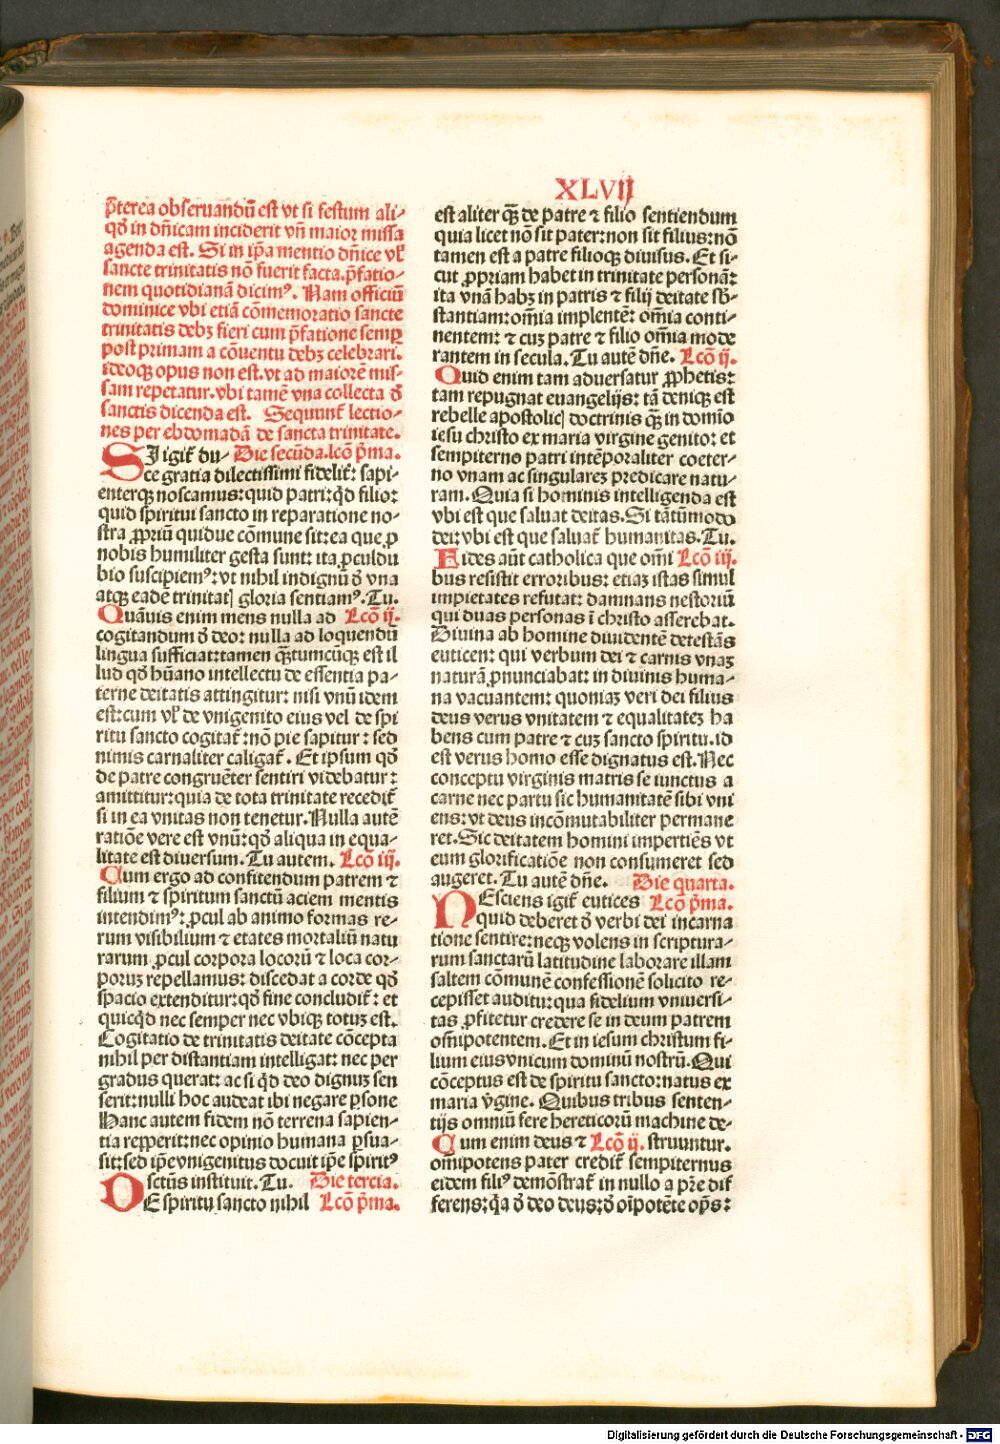 XLVIJ
p̄terea obseruandū est vt si festum ali-
qd̄ in dn̄icam inciderit vn̄ maior missa
agenda est. Si in ip̄a mentio dn̄ice vl̕
sancte trinitatis nō fuerit facta. p̄fatio-
nem quotidianā dicimꝰ. Nam officiū
dominice vbi etiā cōmemoratio sancte
trinitatis debꝫ fieri cum p̄fatione semꝑ
post primam a cōuentu debꝫ celebrari.
ideoqꝫ opus non est. vt ad maiorē mis-
sam repetatur. vbi tamē vna collecta d̄
sanctis dicenda est. Sequunt̄ lectio-
nes per ebdomadā de sancta trinitate.
SI igit̄ du- Die secūda. Lcō p̄ma.
ce gratia dilectissimi fidelit̄: sapi-
enterqꝫ noscamus: quid patri: qd̄ filio:
quid spiritui sancto in reparatione no-
stra ꝓpriū quidue cōmune sit: ea que ꝓ
nobis humiliter gesta sunt: ita ꝓculdu
bio suscipiemꝰ: vt nihil indignū d̄ vna
atqꝫ eadē trinitatꝭ gloria sentiamꝰ. Tu.
Quāuis enim mens nulla ad Lcō ij.
cogitandum d̄ deo: nulla ad loquendū
lingua sufficiat: tamen qꝫtumcūqꝫ est il
lud qd̄ hūano intellectu de essentia pa-
terne deitatis attingitur: nisi vnū idem
est: cum vl̕ de vnigenito eius vel de spi
ritu sancto cogitat̄: nō pie sapitur: sed
nimis carnaliter caligat̄. Et ipsum qd̄
de patre congruēter sentiri videbatur:
amittitur: quia de tota trinitate recedit̄
si in ea vnitas non tenetur. Nulla autē
ratiōe vere est vnū: qd̄ aliqua in equa-
litate est diuersum. Tu autem. Lcō iij.
Cum ergo ad confitendum patrem ⁊
filium ⁊ spiritum sanctū aciem mentis
intendimꝰ: ꝓcul ab animo formas re-
rum visibilium ⁊ etates mortaliū natu
rarum ꝓcul corpora locorū ⁊ loca cor-
poruꝫ repellamus: discedat a corde qd̄
spacio extenditur: qd̄ fine concludit̄: et
quicqd̄ nec semper nec vbiqꝫ totuꝫ est.
Cogitatio de trinitatis deitate cōcepta
nihil per distantiam intelligat: nec per
gradus querat: ac si qd̄ deo dignuꝫ sen
serit: nulli hoc audeat ibi negare ꝑsone
Hanc autem fidem nō terrena sapien-
tia repperit: nec opinio humana ꝑsua-
sit: sed ip̄e vnigenitus docuit ip̄e spiritꝰ
sctūs instituit. Tu. Die tercia.
DE spiritu sancto nihil Lcō p̄ma.
est aliter qꝫ de patre ⁊ filio sentiendum
quia licet nō sit pater: non sit filius: nō
tamen est a patre filioqꝫ diuisus. Et si-
cut ꝓpriam habet in trinitate personā:
ita vnā habꝫ in patris ⁊ filij deitate sb̄-
stantiam: om̄ia implentē: om̄ia conti-
nentem: ⁊ cuꝫ patre ⁊ filio om̄ia mode
rantem in secula. Tu autē dn̄e. Lcō ij.
Quid enim tam aduersatur ꝓphetis:
tam repugnat euangelijs: tā deniqꝫ est
rebelle apostolicꝭ doctrinis qꝫ in domīo
iesu christo ex maria virgine genito: et
sempiterno patri intēporaliter coeter-
no vnam ac singulareꝫ predicare natu-
ram. Quia si hominis intelligenda est
vbi est que saluat deitas. Si tātūmodo
dei: vbi est que saluat̄ humanitas. Tu.
Fides aūt catholica que om̄i Lcō iij.
bus resistit erroribus: etiaꝫ istas simul
impietates refutat: damnans nestoriū
qui duas personas ī christo asserebat.
Diuina ab homine diuidentē detestās
euticen: qui verbum dei ⁊ carnis vnaꝫ
naturā ꝓnunciabat: in diuinis huma-
na vacuantem: quoniaꝫ veri dei filius
deus verus vnitatem ⁊ equalitateꝫ ha
bens cum patre ⁊ cuꝫ sancto spiritu. id
est verus homo esse dignatus est. Nec
conceptu virginis matris seiunctus a
carne nec partu sic humanitatē sibi vni
ens: vt deus incōmutabiliter permane
ret. Sic deitatem homini impertiēs vt
eum glorificatiōe non consumeret sed
augeret. Tu autē dn̄e. Die quarta.
NEsciens igit̄ eutices Lcō p̄ma.
quid deberet d̄ verbi dei incarna
tione sentire: neqꝫ volens in scriptura-
rum sanctarū latitudine laborare illam
saltem cōmunē confessionē solicito re-
cepisset auditu: qua fidelium vniuersi-
tas ꝓfitetur credere se in deum patrem
om̄ipotentem. Et in iesum christum fi-
lium eius vnicum dominū nostrū. Qui
cōceptus est de spiritu sancto: natus ex
maria v̄gine. Quibus tribus senten-
tijs omniū fere hereticorū machine de-
Cum enim deus ⁊ Lcō ij. struuntur.
om̄ipotens pater credit̄ sempiternus
eidem filiꝰ demōstrat̄ in nullo a pr̄e dif
ferens: qa̅ d̄ deo deus: d̄ oīpotēte op̄s:
Digitalisierung gefördert durch die Deutsche Forschungsgemeinschaft - DFG